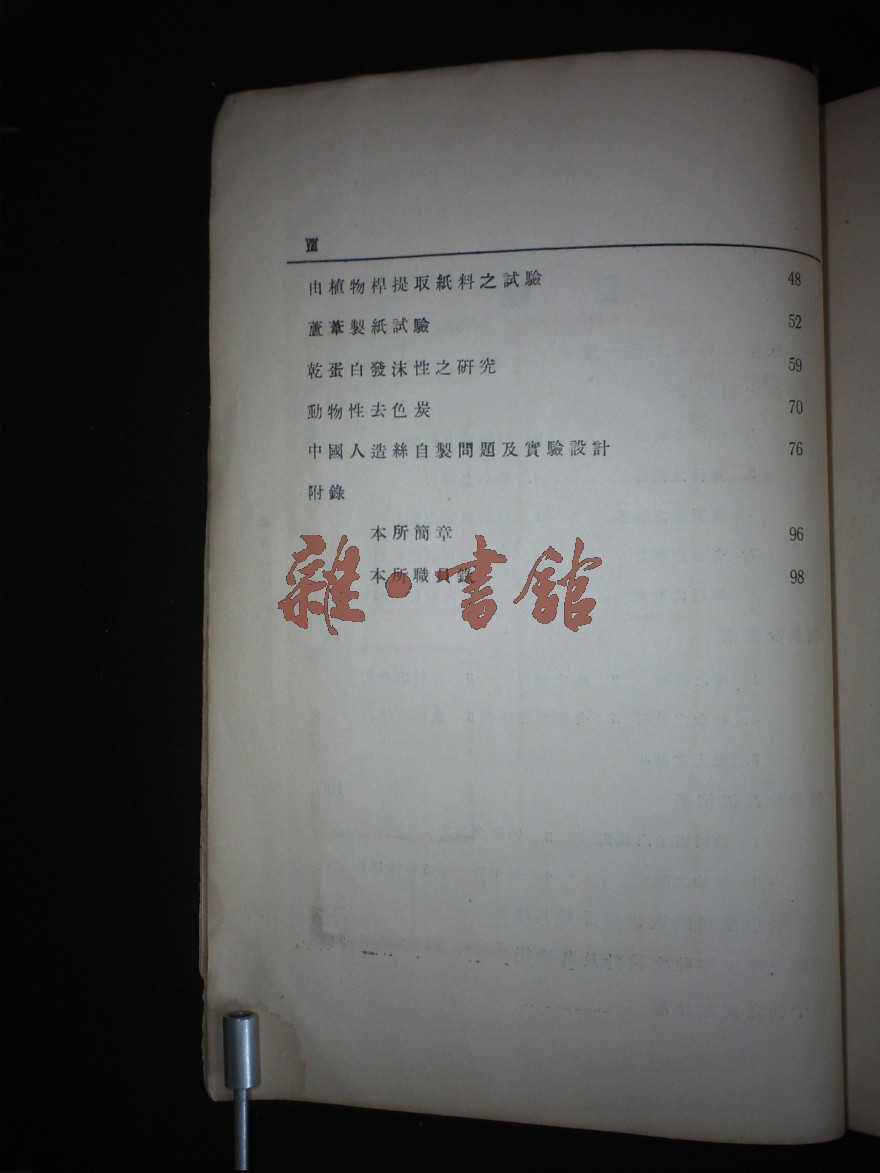 VIII
由植物桿提取紙料之試驗 48
蘆葦製紙試驗 52
乾蛋白發沫性之研究 59
動物性去色炭 70
中國人造絲自製問題及實驗設計 76
附錄
本所簡章 96
本所職員錄 98
雜·書館